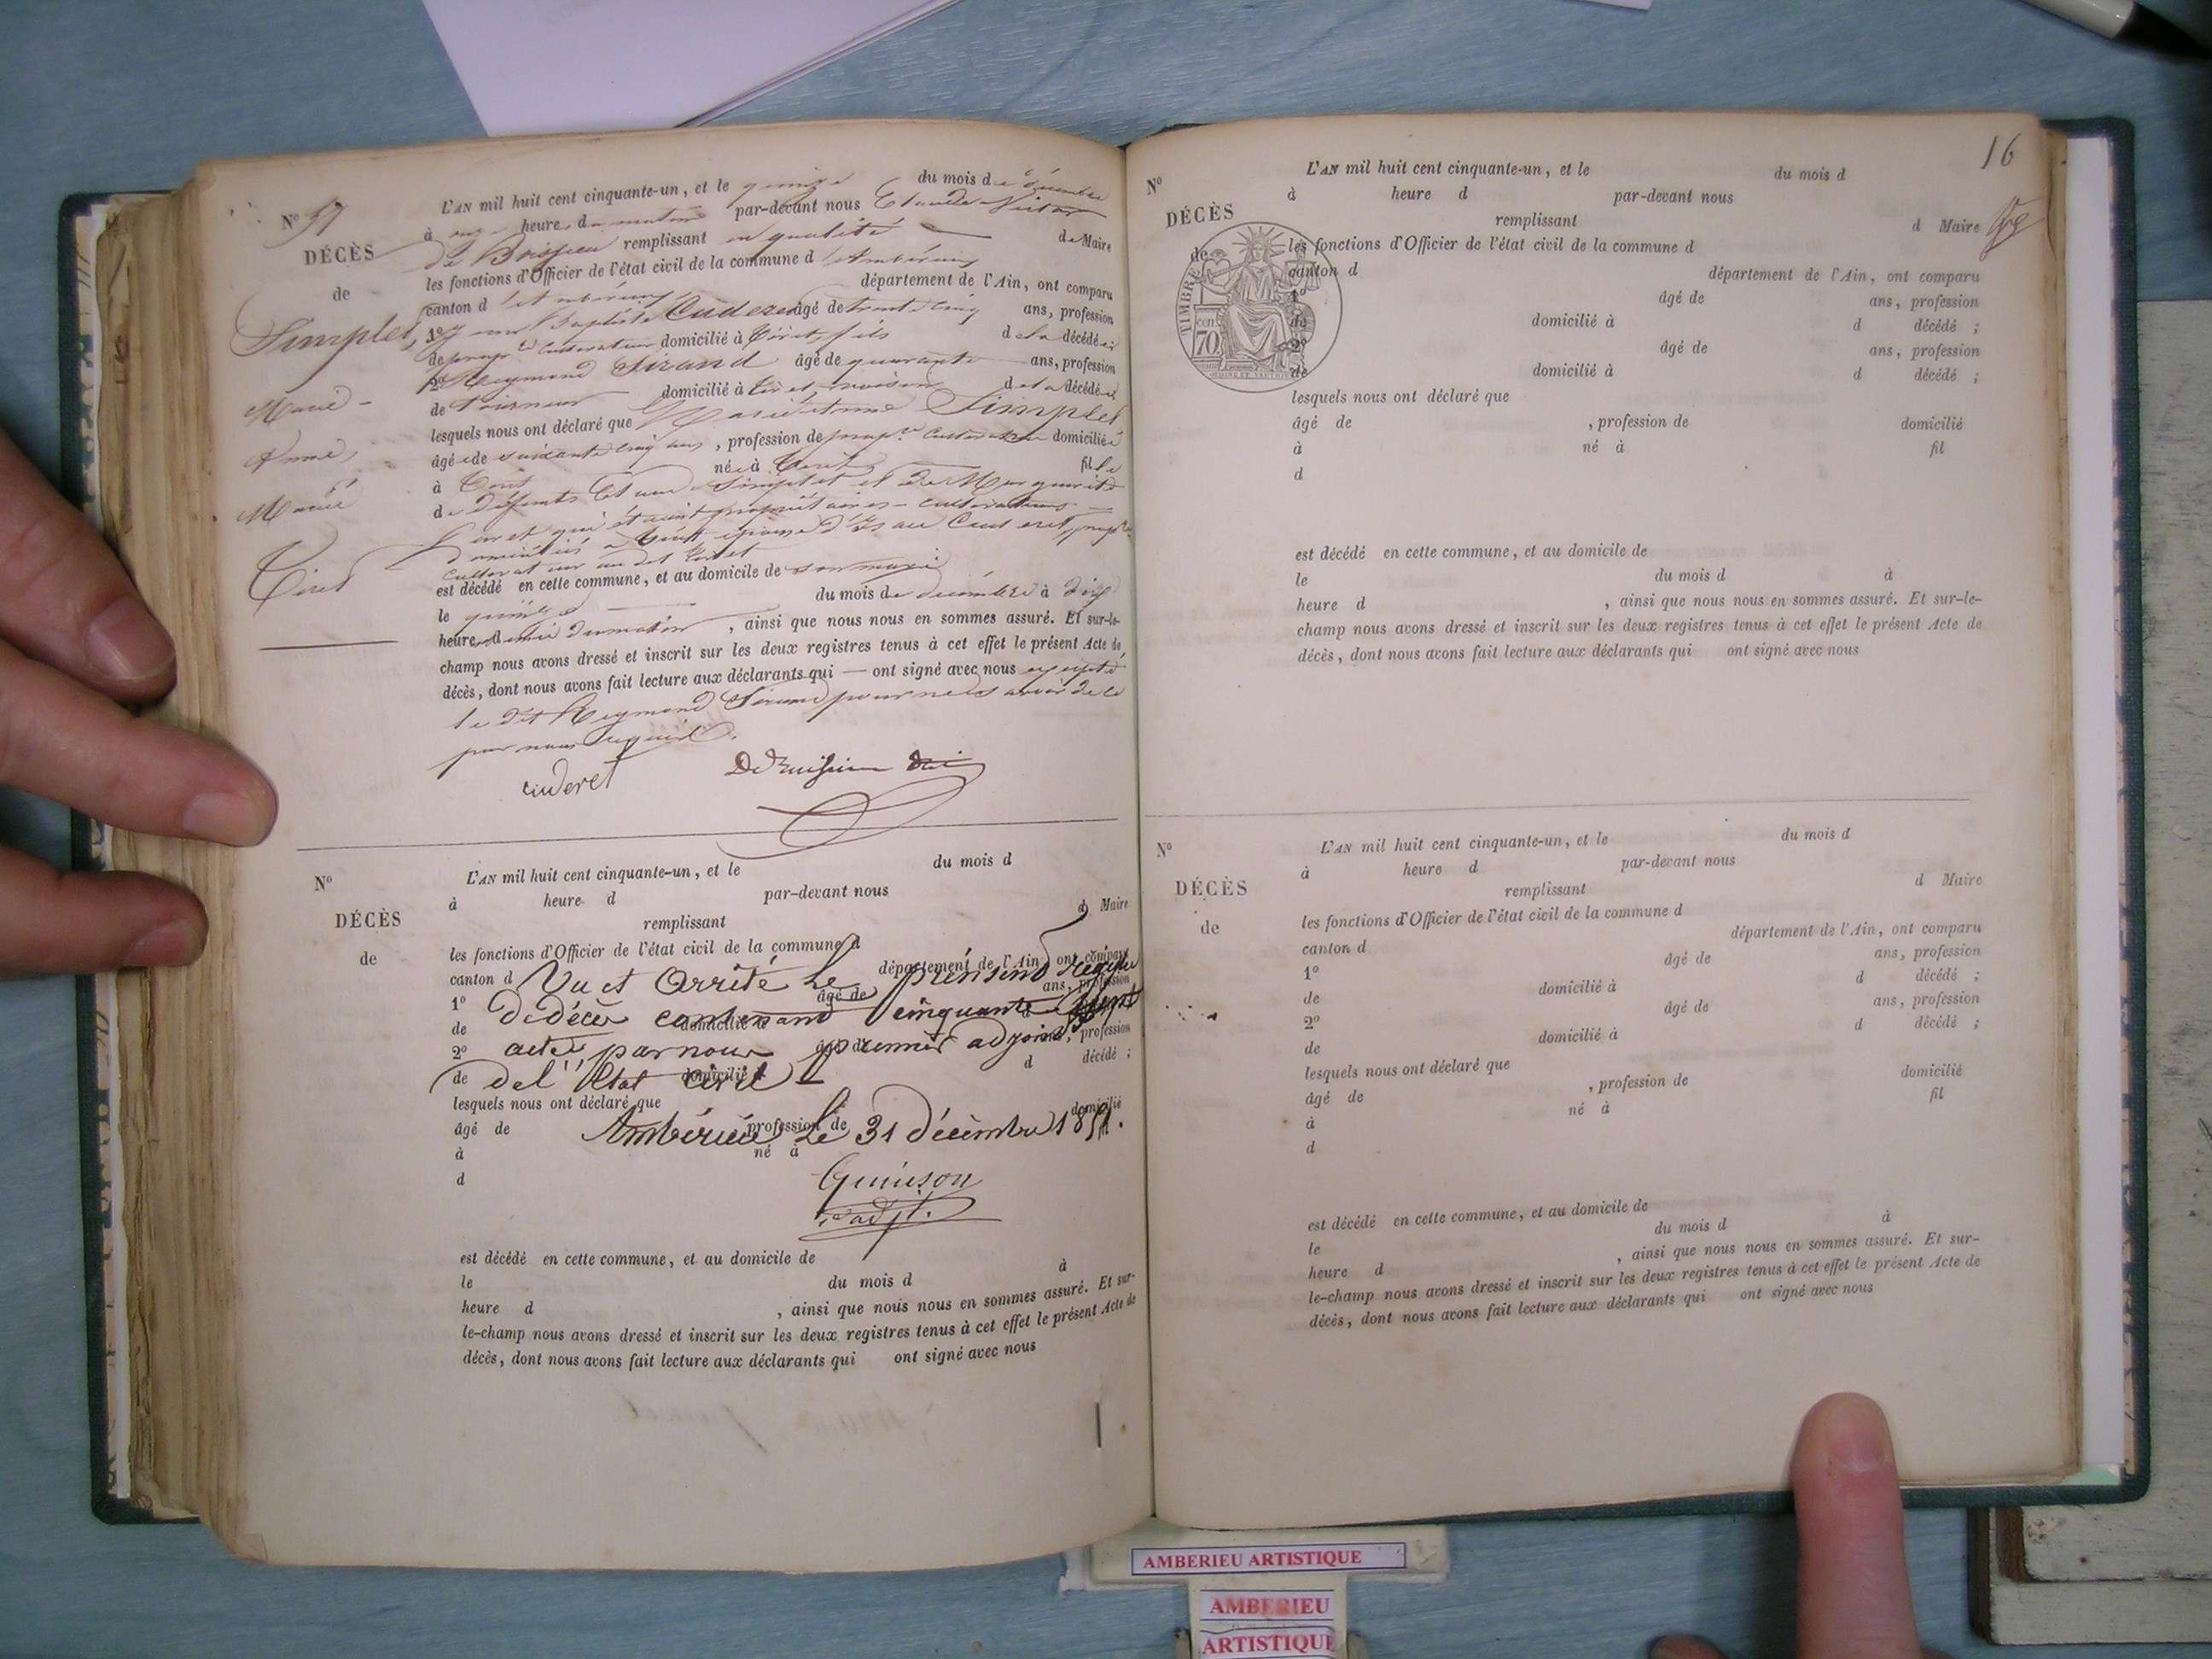 N° 57
DÉCÈS
de
Simplet,
Marie -
Anne,
Mariée
Tiret
L'AN mil huit cent cinquante-un, et le quinze du mois de décembre
à onze heures du matin par-devant nous Claude Victor
de Boissieu remplissant en qualité de Maire
les fonctions d'Officier de l'état civil de la commune d'Ambérieu
canton d'Ambérieu département de l'Ain, ont comparu
1° Jean Baptiste Cuderet âgé de trente cinq ans, profession
de propre cultivateur domicilié à Tiret, fils de la décédée;
2° Reymond Sirand âgé de quarante ans, profession
de domicilié à Tiret, voisin de la décédée;
lesquels nous ont déclaré que Marie Anne Simplet
âgée de soixante cinq ans, profession de propre cultivateur domiciliée
à Tiret née à Tiret fille
de défunts Simplet et de Marguerite
qui étaient propriétaires - cultivateurs
domiciliés à Tiret épouse d' Cuderet, propre
cultivateur au dit Tiret
est décédé en cette commune, et au domicile de son mari
le quinze du mois de décembre à dix
heures demie du matin, ainsi que nous nous en sommes assuré. Et sur-le-
champ nous avons dressé et inscrit sur les deux registres tenus à cet effet le présent Acte de
décès, dont nous avons fait lecture aux déclarants qui — ont signé avec nous excepté
le dit Reymond Sirand pour ne savoir de ce
par nous requis.
cuderet De Boissieu
N°
DÉCÈS
de
L'AN mil huit cent cinquante-un, et le du mois d
à heure d par-devant nous
remplissant d Maire
les fonctions d'Officier de l'état civil de la commune d
canton d département de l'Ain, ont comparu
Vu et Arrêté le présent régistre
1° âgé de ans, profession
de décès contenant cinquante sept
de domicilié à d
2° âgé de ans, profession
actes par nous premier adjoint
de domicilié à d décédé ;
de l'Etat civil
lesquels nous ont déclaré que
âgé de profession de domicilié
Ambérieu Le 31 décembre 1851.
à né à
d
Guinson
adjt.
est décédé en cette commune, et au domicile de
le du mois d à
heure d , ainsi que nous nous en sommes assuré. Et sur-
le-champ nous avons dressé et inscrit sur les deux registres tenus à cet effet le présent Acte de
décès, dont nous avons fait lecture aux déclarants qui ont signé avec nous
16
N°
DÉCÈS
de
TIMBRE
70 cen
L'AN mil huit cent cinquante-un, et le du mois d
à heure d par-devant nous
remplissant d Maire
les fonctions d'Officier de l'état civil de la commune d
canton d département de l'Ain, ont comparu
1° âgé de ans, profession
de domicilié à d décédé ;
2° âgé de ans, profession
de domicilié à d décédé ;
lesquels nous ont déclaré que
âgé de , profession de domicilié
à né à fil
d
est décédé en cette commune, et au domicile de
le du mois d à
heure d , ainsi que nous nous en sommes assuré. Et sur-le-
champ nous avons dressé et inscrit sur les deux registres tenus à cet effet le présent Acte de
décès, dont nous avons fait lecture aux déclarants qui ont signé avec nous
N°
DÉCÈS
de
L'AN mil huit cent cinquante-un, et le du mois d
à heure d par-devant nous
remplissant d Maire
les fonctions d'Officier de l'état civil de la commune d
canton d département de l'Ain, ont comparu
1° âgé de ans, profession
de domicilié à d décédé ;
2° âgé de ans, profession
de domicilié à d décédé ;
lesquels nous ont déclaré que
âgé de , profession de domicilié
à né à fil
d
est décédé en cette commune, et au domicile de
le du mois d à
heure d , ainsi que nous nous en sommes assuré. Et sur-
le-champ nous avons dressé et inscrit sur les deux registres tenus à cet effet le présent Acte de
décès, dont nous avons fait lecture aux déclarants qui ont signé avec nous
AMBERIEU ARTISTIQUE
AMBERIEU
ARTISTIQUE